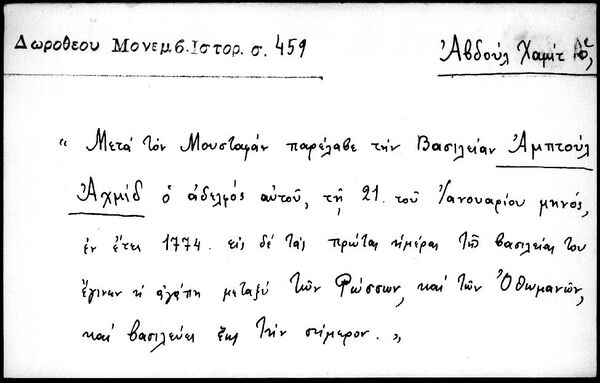 Δωροθεου Μονεμβ. Ιστορ. σ. 459
Ἀβδούλ Χαμίτ Αʹ,
“ Μετά τόν Μουσταφάν παρέλαβε τήν Βασιλείαν Ἀμπτούλ
Ἀχμίδ ὁ ἀδελφός αὐτοῦ, τῇ 21. τοῦ Ἰανουαρίου μηνός,
ἐν ἔτει 1774. εις δέ τάς πρώτας ἡμέρας τῆς βασιλείας του
ἔγινεν ἡ ἀγάπη μεταξύ τῶν Ρώσσων, καί τῶν Ὀθωμανῶν,
καί βασιλεύει ἕως τήν σήμερον. „